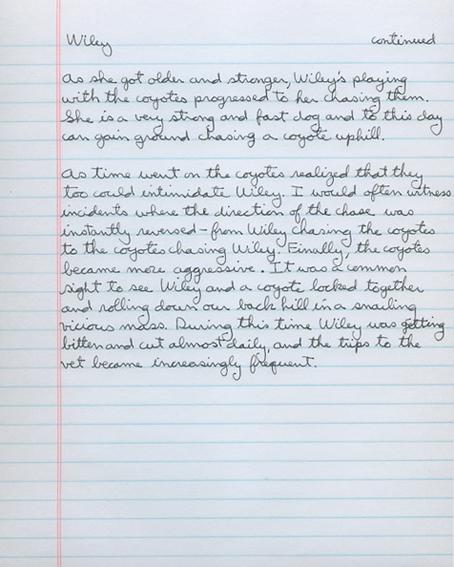 Wiley continued
As she got older and stronger, Wiley's playing
with the coyotes progressed to her chasing them.
She is a very strong and fast dog and to this day
can gain ground chasing a coyote uphill.
As time went on the coyotes realized that they
too could intimidate Wiley. I would often witness
incidents where the direction of the chase was
instantly reversed - from Wiley chasing the coyotes
to the coyotes chasing Wiley. Finally, the coyotes
became more aggressive. It was a common
sight to see Wiley and a coyote locked together
and rolling down our back hill in a snarling
vicious mass. During this time Wiley was getting
bitten and cut almost daily, and the trips to the
vet became increasingly frequent.